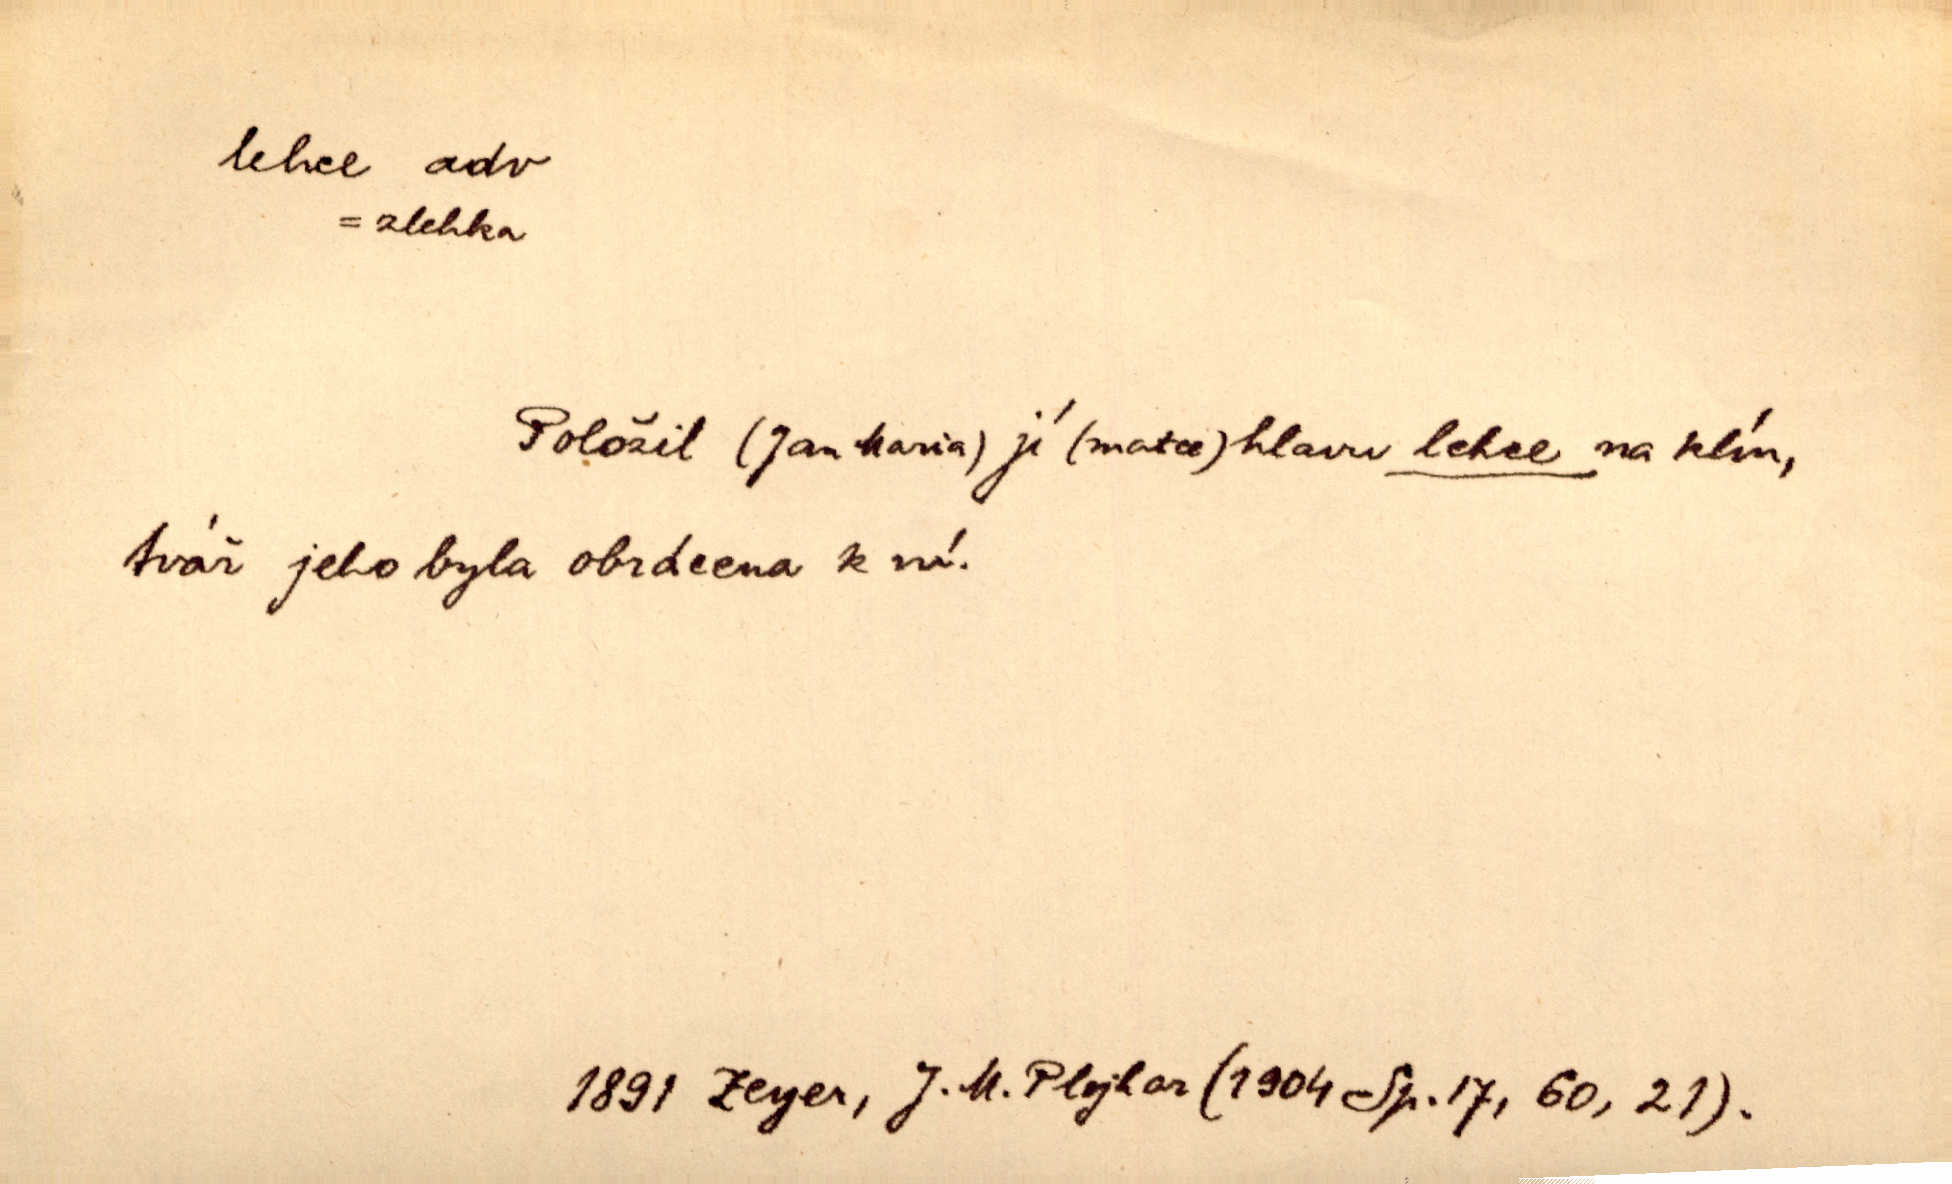 lehce adv
= zlehka
Položil (Jan Maria) jí (matce) hlavu lehce na klín,
tvář jeho byla obrácena k ní.
1891 Zeyer, J. M. Plojhar (1904 Sp. 17, 60, 21).